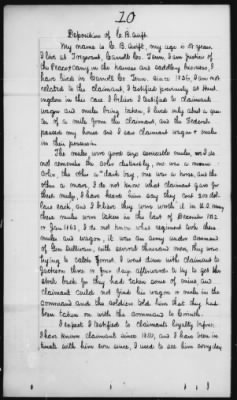 10
Deposition of C. B. Swift.
My name is C. B. Swift, my age is years
I live at Trezevant, Carroll Co. Tenn. I am Justice of
the Peace, & carry on the harness and saddlery business, I
have lived in Carroll Co Tenn. since 1836, I am not
related to the claimant, I testified previously at Hunt-
ingdon in this case I believe I testified to claimants
wagon and mules being taken, I lived only about a quar-
ter of a mile from the claimant, and the Federals
passed my house and I saw claimants wagon & mules
in their possession.
The mules were good size serviceable mules, we do
not remember the color distinctly, one was a mouse
color, the other a dark bay, one was a horse, and the
other a mare, I do not know what claimant gave for
their mules, I have heard him say they cost dol-
lars each, and I believe they were worth it in 62 now
these mules were taken in the last of December 1862
or Jan 1863, I do not know what regiment took these
mules and wagon, it was an army under command
of Gen Sullivan, with several thousand men, they were
trying to catch Forrest. I went down with claimant to
Jackson three or four days afterwards to try to get the
stock back for they had taken some of mine, and
claimant could not find his wagon or mules in the
command and the soldiers told him that they had
been taken on with the command to Corinth.
I expect I testified to claimants loyalty before.
I have known claimants since and I have been in
with him ever since, I used to see him every day